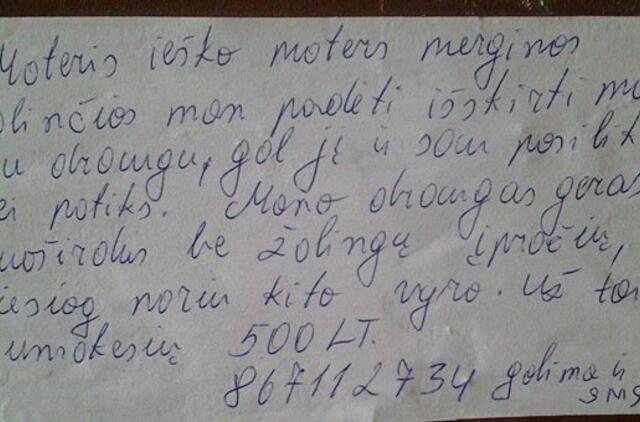 Moteris ieško moters merginos
linčios man padėti išskirti m
u draugu, gal ją ir sau pasilik
ei patiks. Mano draugas geras
nuoširdus be žalingų įpročių,
iesiog noriu kito vyro. Už tai
umokėsiu 500 LT.
867112734 galima ir
SMS